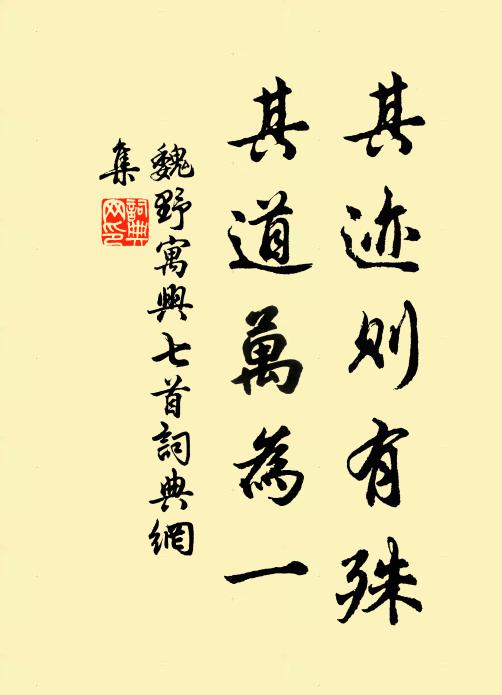 其迹则有殊
其道萬為一
魏野寓興七首詞典網
集
詞典
网印